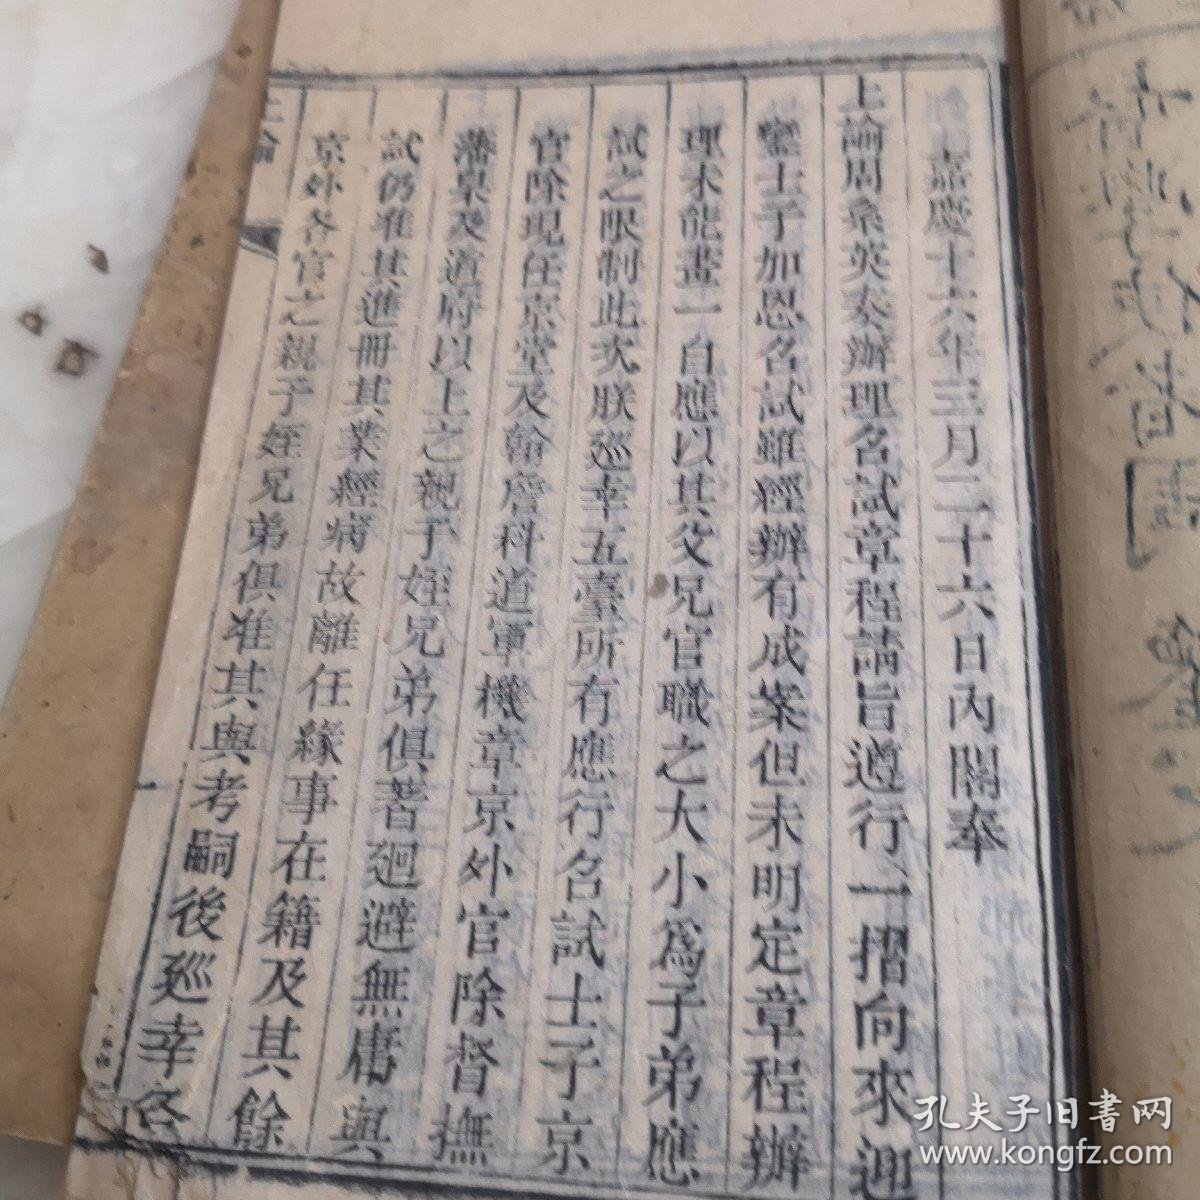 嘉慶十六年三月二十六日內閣奉
上諭周系英奏辦理召試章程請旨遵行一摺向來迎
鑾士子加恩召試雖經辦有成案但未明定章程辦
理未能畫一自應以其父兄官職之大小爲子弟應
試之限制此次朕巡幸五臺所有應行召試士子京
官除現任京堂及翰詹科道軍機章京外官除督撫
藩臬及道府以上之親子姪兄弟俱著迴避無庸與
試仍准其進冊其業經病故離任緣事在籍及其餘
京外各官之親子姪兄弟俱准其與考嗣後巡幸各
上諭
孔夫子旧書网
www.kongfz.com